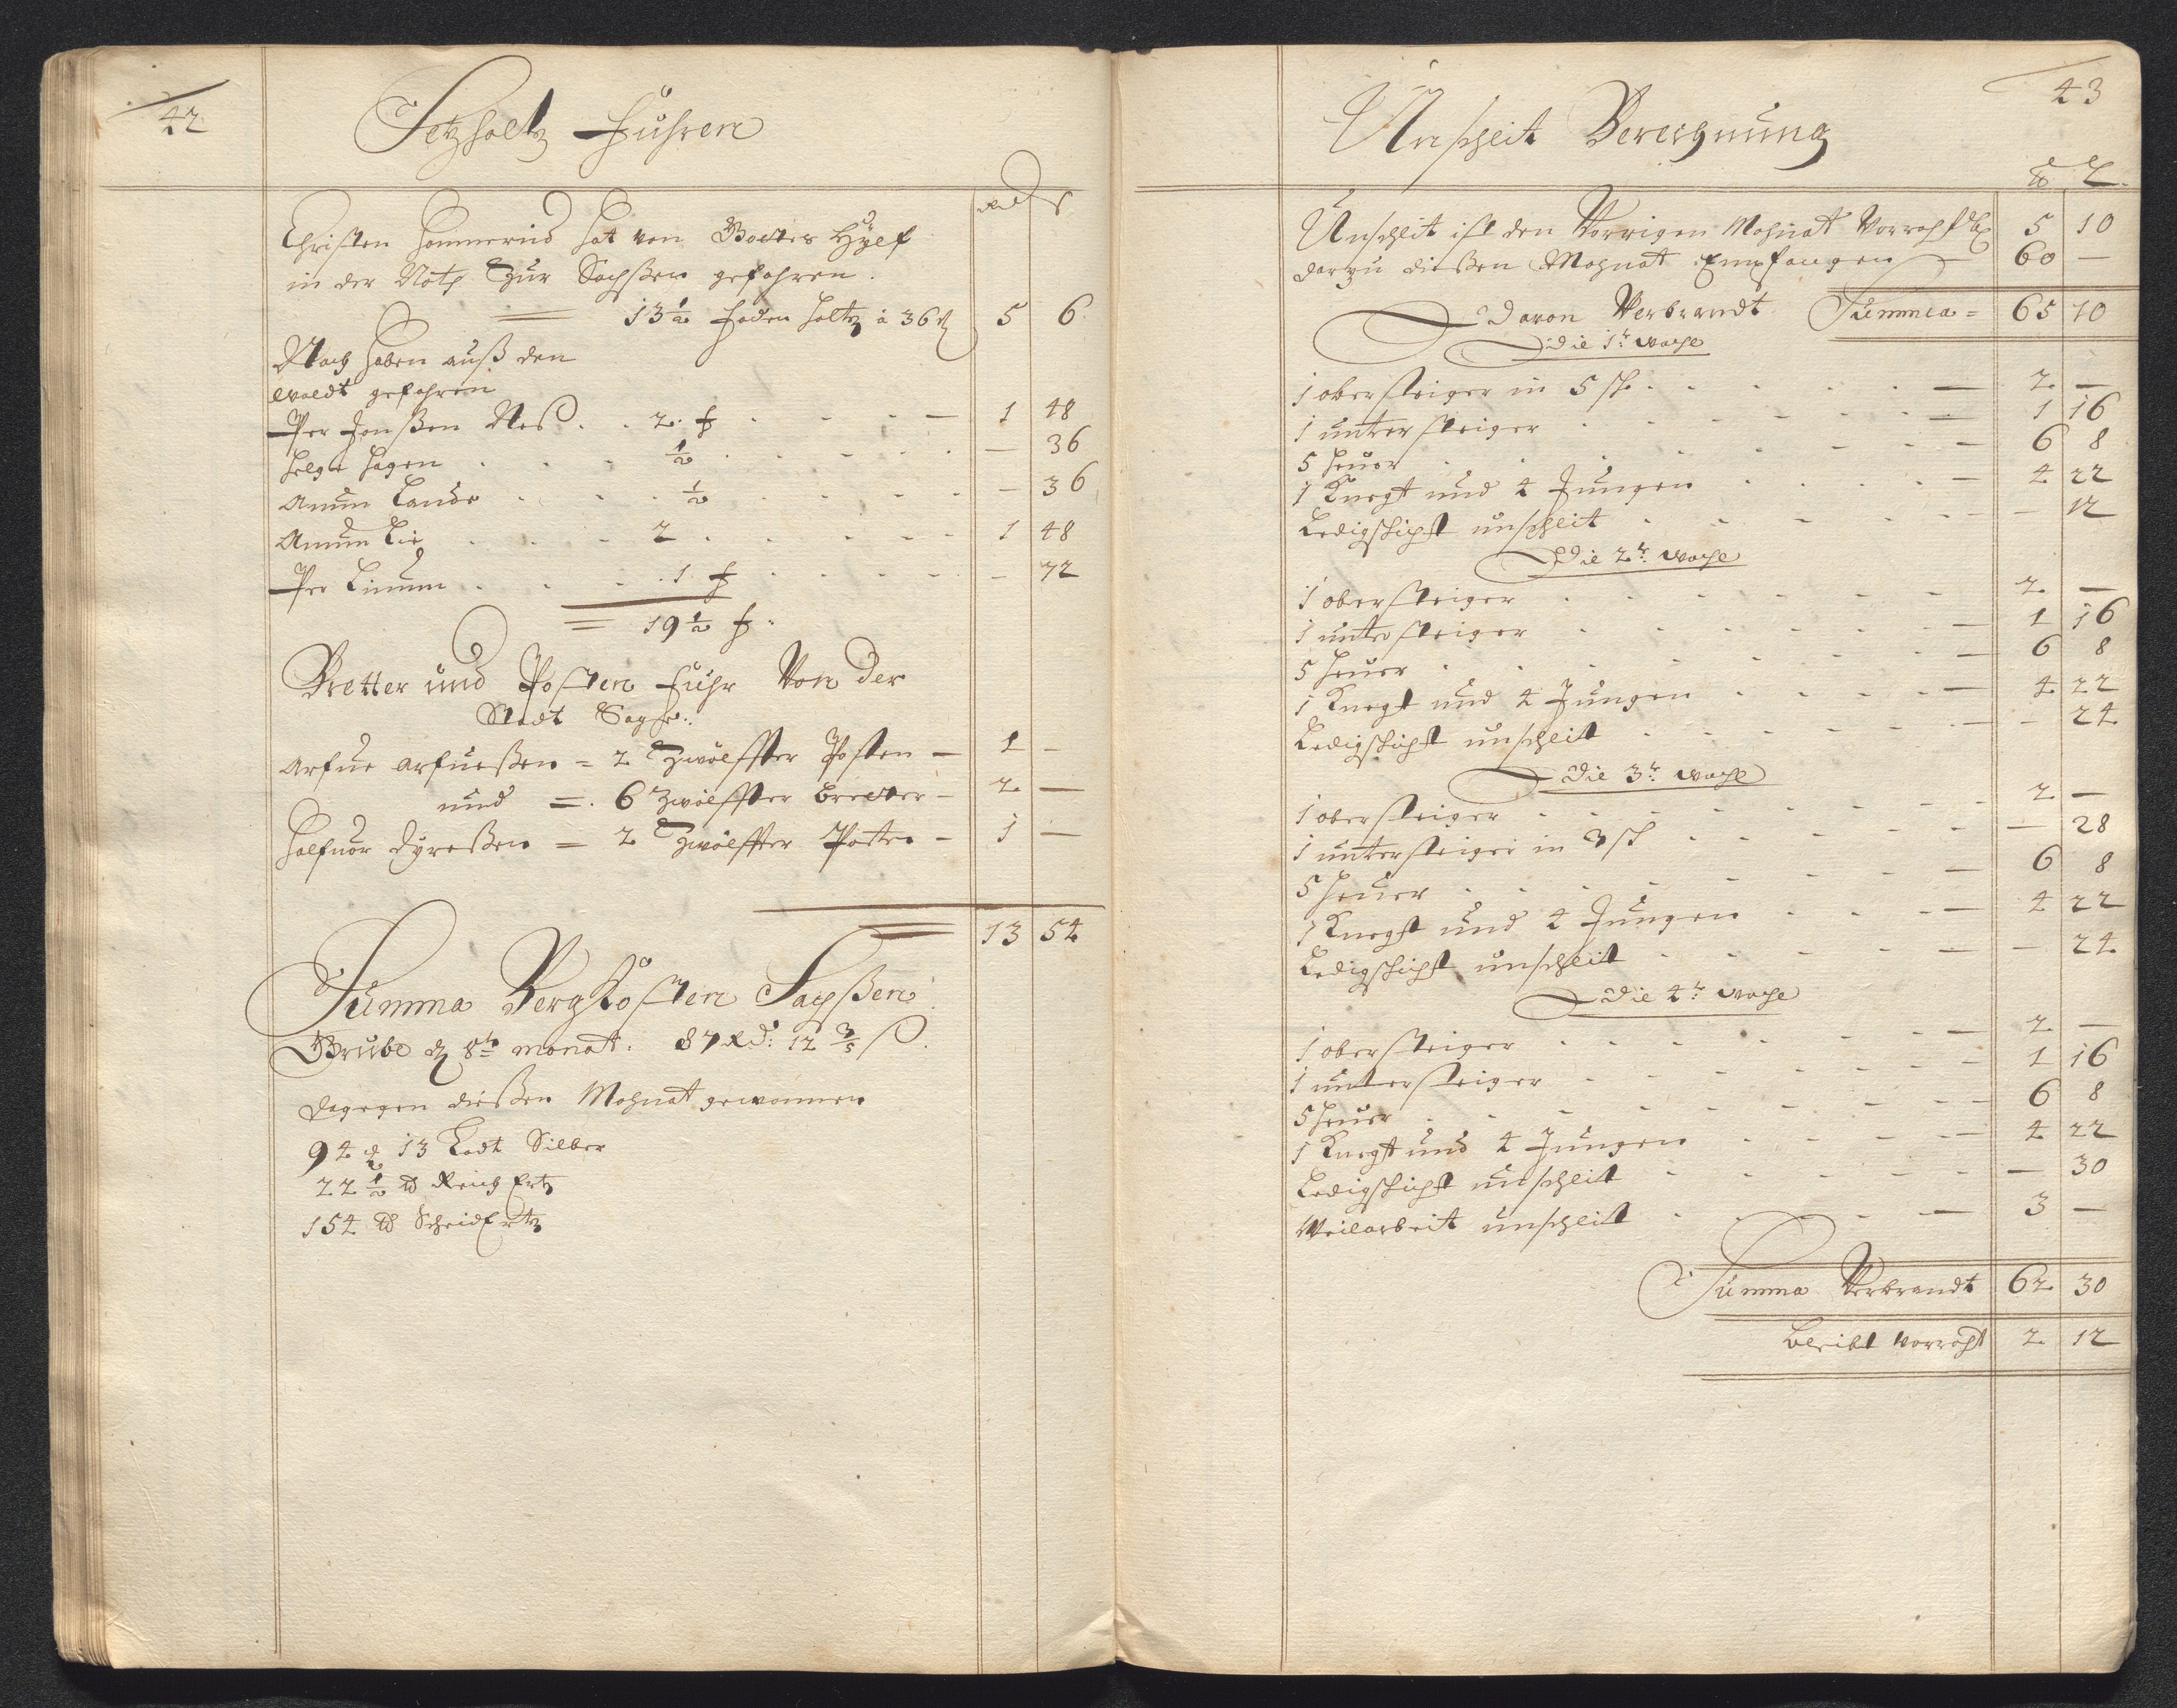 42
Setzholtz Fuhren
Rd ß
Christen Hammerud hat von Goeteos Hÿlf
in der Noth Zur Sachßen gefahren.
= 13½ Faden holtz â 36 ß 5 6
Noch haben auß den
waldt gefahren
Per Jonßen Nes . . 2. f . . . — 1 48
Helge Hagen . . . ½ . . . . . — 36
Amun Lande . . . ½ . . . . — 36
Amun Lie . . . . 2 . . . . - 1 48
Per Limum . . . . 1 f . . . . - 72
= 19½ f.
Bretter und Posten Fuhr Von der
Stadt Sage:
Arfue Arfueßen = 2 Zwölffter Posten — 1 -
und =. 6 Zwölffter Bretter — 2. —
Halfuor Gÿroßen = 2 Zwölffter Posten - 1 —
13 54
Summa Bergkosten Sachßen
Grube 8te monat. 87 Rd: 12 3/5 ß.
Dagegen dießen Mohnat gewonnen
94 13 Lodt Silber
22½ ℔ Reich Ertz
154 ℔ ScheidErtz
43
Unschleit Berechnung
℔ L.
Unschleit ist den Vorrigen Mohnat Vorraht 5 10
darzu dießen Mohnat Empfangen — 60 —
Davon Verbrandt Summa = 65 10
Die 1te. woche
1 obersteiger in 5 sch. . . . . . — 2. —
1 untersteiger . . . . . . . — 1 16
5 heuer . . . . . . . . - 6 8
1 Knecht und 4 Jungen . . . . — 4 22
Ledigschicht unschleit . . . . . — 12
Die 2te. woche
1 obersteiger . . . . . . - 2. —
1 untersteiger . . . . . . — 1 16
5 heuer . . . . . . . — 6 8
1 Knecht und 4 Jungen . . . . — 4 22
Ledigschicht unschleit . . . . . - 24
Die 3te. woche
1 obersteiger . . . . . . . - 2 —
1 untersteiger in 3 sch . . . . . — 28
5 heuer . . . . . . . — 6 8
1 Knecht und 4 Jungen . . . — 4 22
Ledigschicht unschleit . . . . — - 24
Die 4te. woche
1 obersteiger . . . . . . — 2 —
1 untersteiger . . . . . . . — 1 16
5 heuer . . . . . . . — 6 8
1 Knecht und 4 Jungen . . . . — 4 22
Ledigschicht unschleit . . . . . — 30
Weilarbeit unschleit . . . . — 3 —
Summa Verbrandt 62 30
bleibt vorraht 2. 12